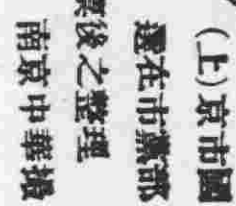 (上)京市國
選在市黨部
後之整理
南京中華攝